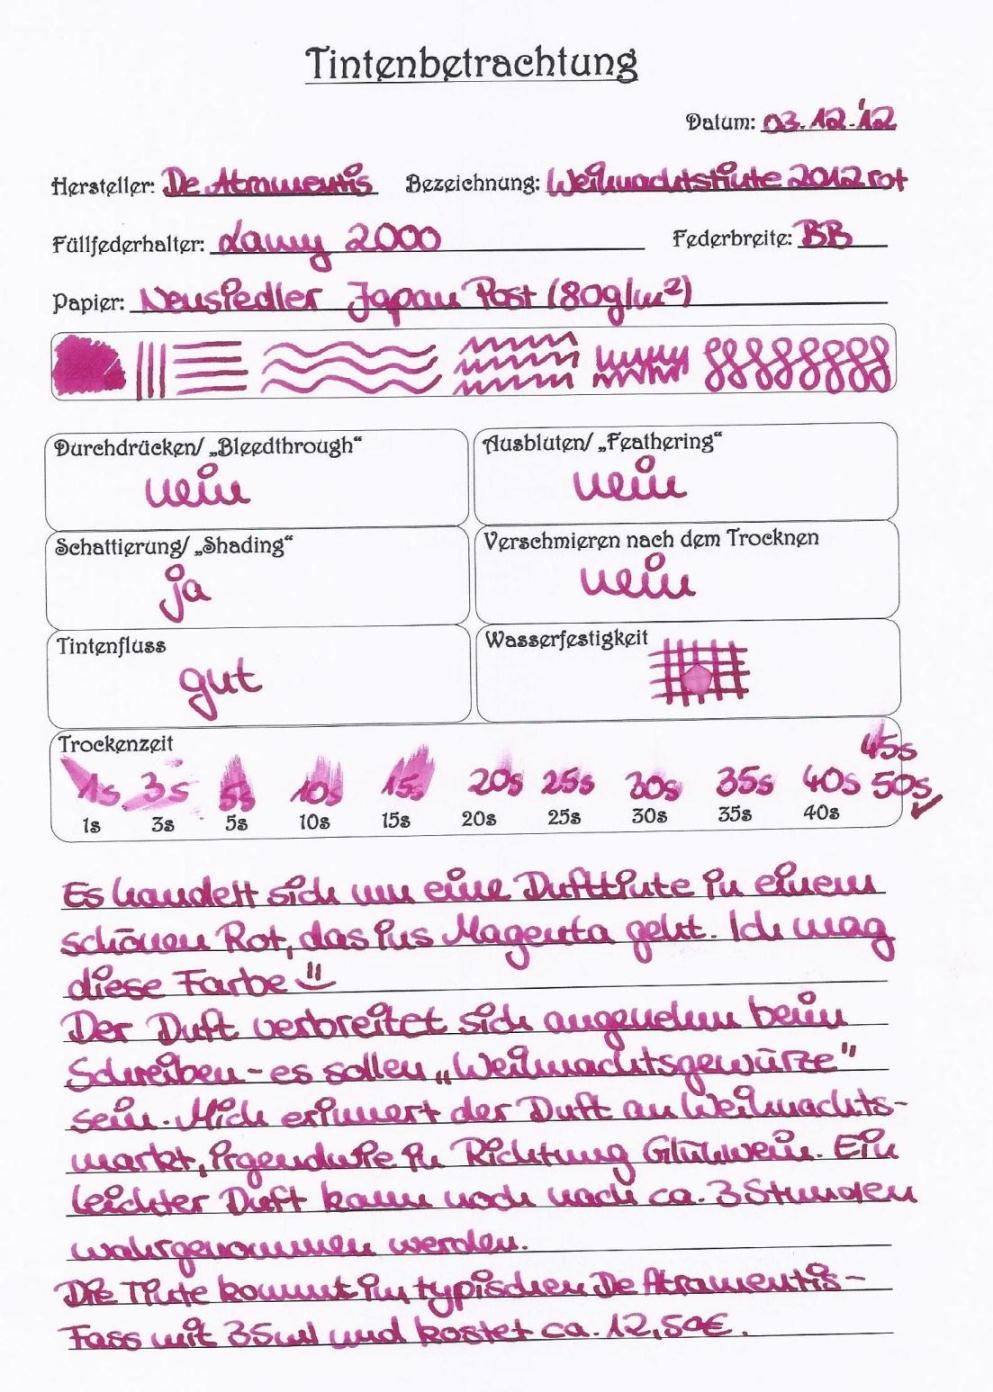 Tintenbetrachtung
Datum: 03.12.'12
Hersteller: De Atramentis Bezeichnung: Weihnachtstinte 2012 rot
Füllfederhalter: Lamy 2000 Federbreite: BB
Papier: Neusiedler Japan Post (80g/m²)
Durchdrücken/ „Bleedthrough“ Ausbluten/ „Feathering“
nein nein
Schattierung/ „Shading“ Verschmieren nach dem Trocknen
ja nein
Tintenfluss Wasserfestigkeit
gut
Trockenzeit 45s
1s 3s 5s 10s 15s 20s 25s 30s 35s 40s 50s ✓
1s 3s 5s 10s 15s 20s 25s 30s 35s 40s
Es handelt sich um eine Dufttinte in einem
schönen Rot, das ins Magenta geht. Ich mag
diese Farbe
Der Duft verbreitet sich angenehm beim
Schreiben - es sollen „Weihnachtsgewürze"
sein. Mich erinnert der Duft an Weihnachts-
markt, irgendwie in Richtung Glühwein. Ein
leichter Duft kann noch nach ca. 3 Stunden
wahrgenommen werden.
Die Tinte kommt im typischen De Atramentis-
Fass mit 35ml und kostet ca. 12,50€.